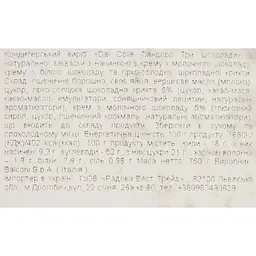 Кондитерський виріб «Dal Colle Пандоро Три шоколади» з
натуральної закваски з начинкою з крему з молочного шоколаду,
крему з білого шоколаду та гірко-солодкої шоколадної крихти.
Склад: пшеничне борошно, свіжі яйця, вершкове масло (молоко),
цукор, гірко-солодка шоколадна крихта 6% (цукор, какао-маса,
какао-масло, емульгатори: соняшниковий лецитин, натуральні
ароматизатори), крем з молочного шоколаду 5% (глюкозний
сироп, цукор, пшеничний крохмаль, натуральні ароматизатори)
що входить до складу продукту. Зберігати в сухому та
прохолодному місці. Енергетична цінність 100 г продукту
(КДж)/402 ккал(ккал). 100 г продукту містить: жири - 18 г, з них
насичені 9,3 г, вуглеводи - 52 г, з них цукри 31 г, харчові волокна
– 1,8 г, білки 7,9 г, сіль 0,38 г. Маса нетто 750 г. Виробник:
(Італія).
Імпортер в Україні: ТзОВ «Радохів Вест Трейд», 82100 Львівська
обл, м.Дрогобич, вул. 22 січня,